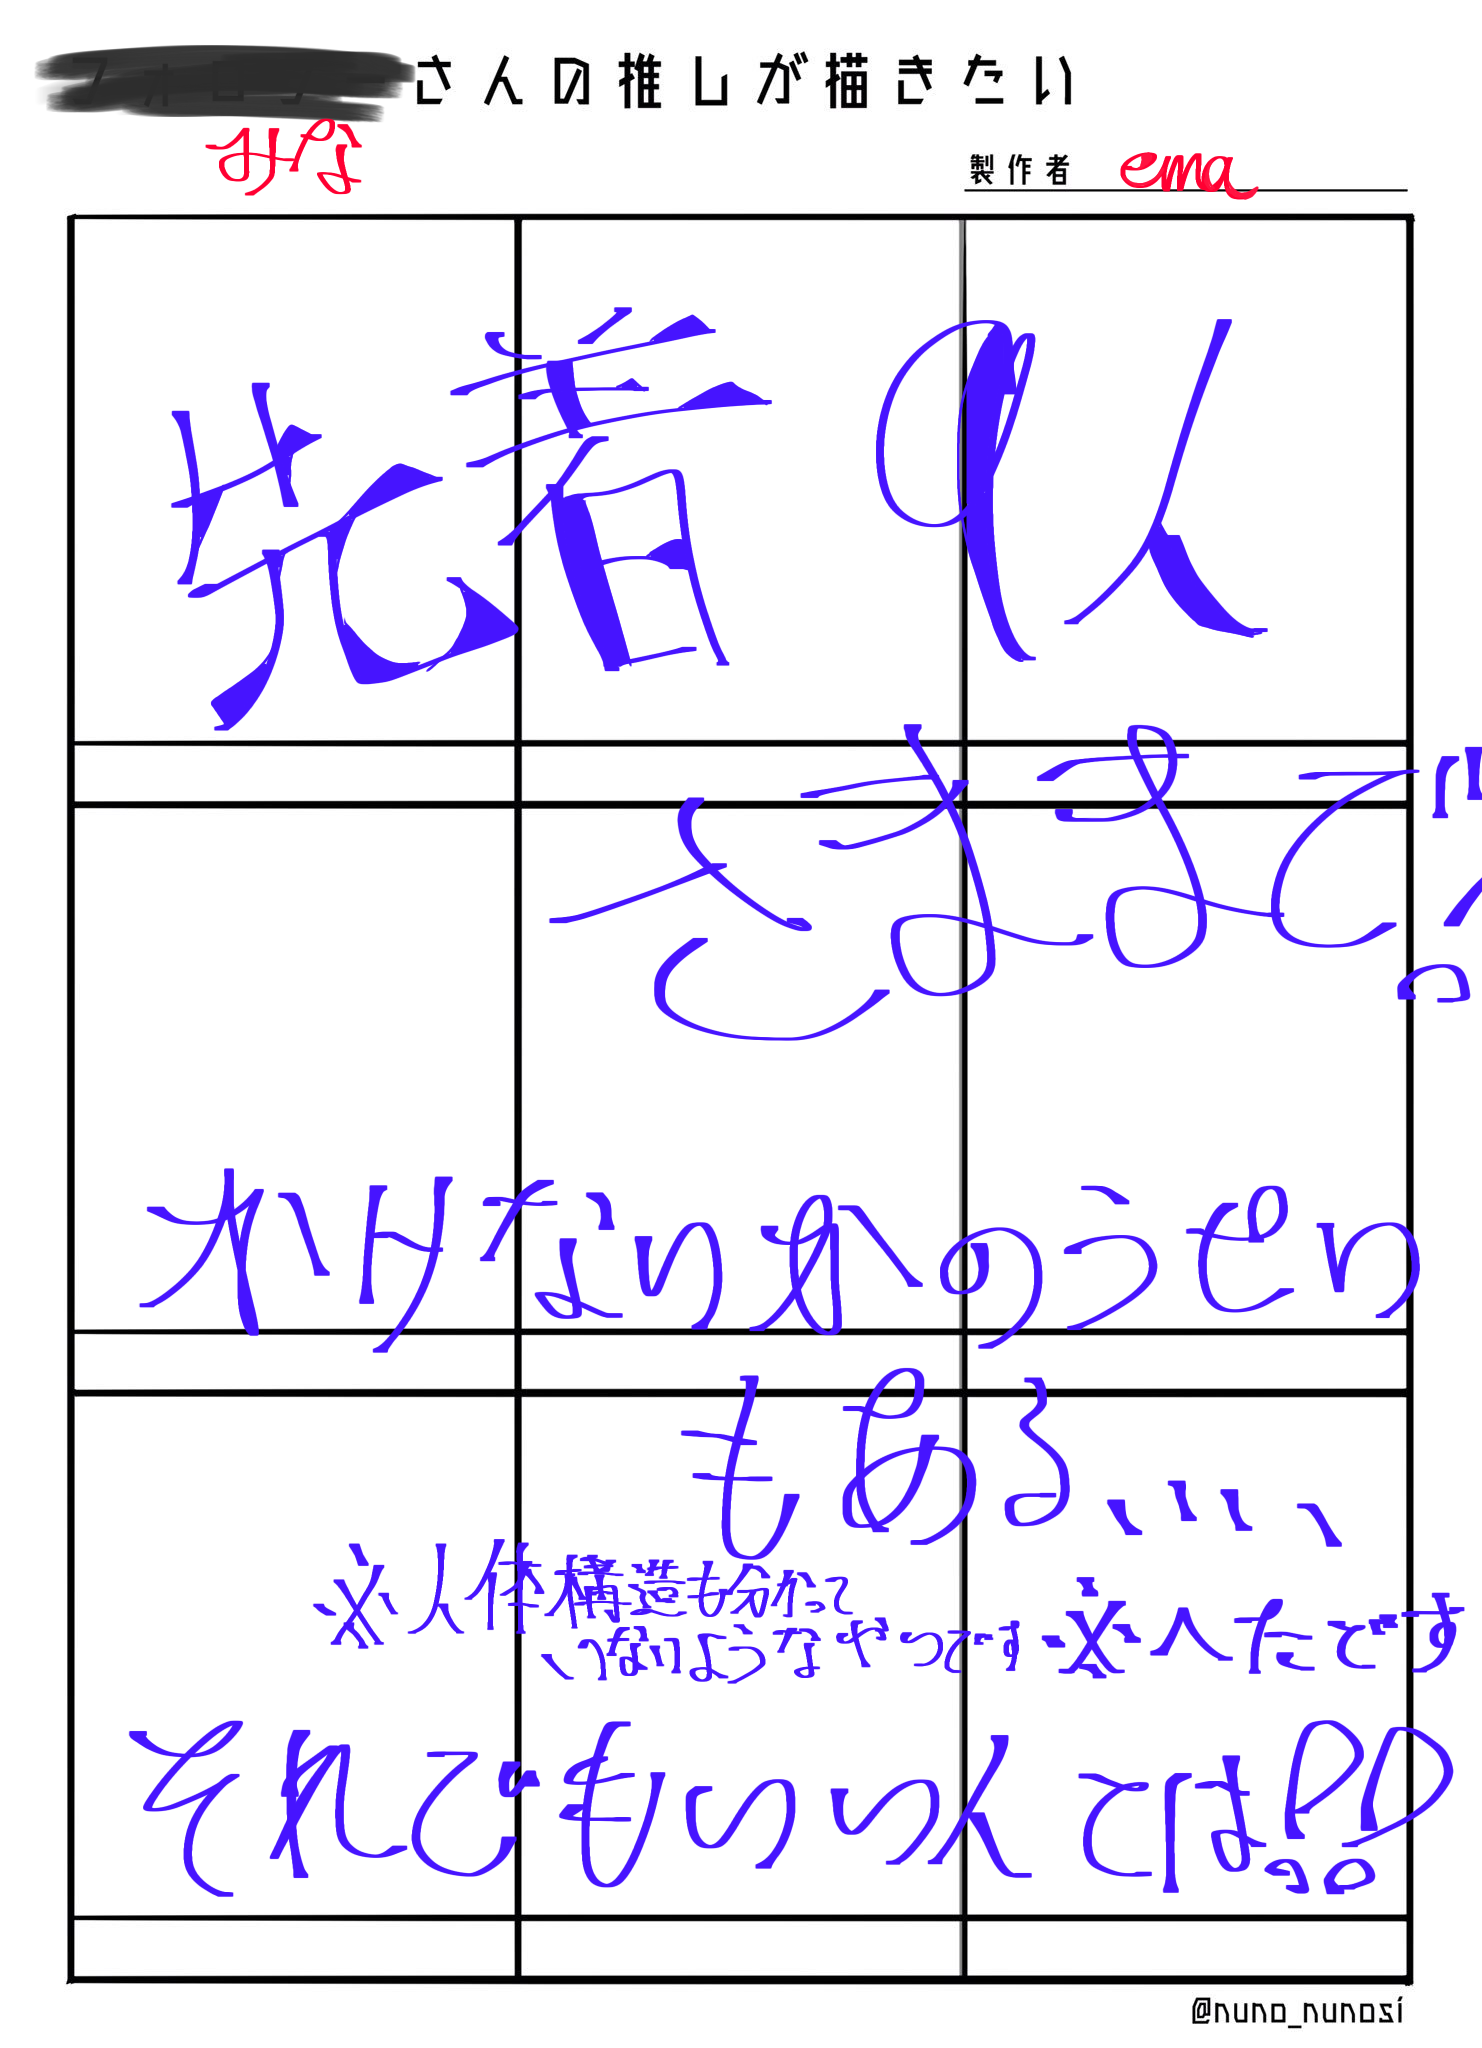 フォロワーさんの推しが描きたい
みな
製作者 ema
先着9人
さままで!!
かけないかのうせい
もある、、、、
※人体構造も分かって
いないようなやつです
※へたです
それでもいい人では!!
@nuno_nunosi